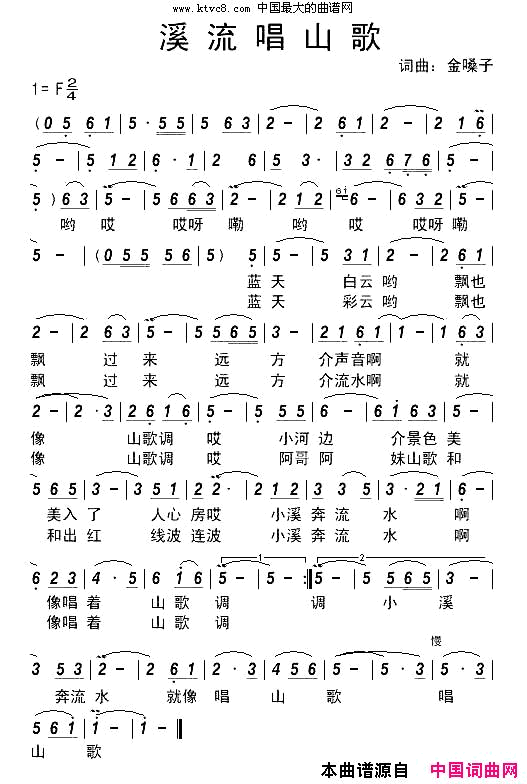 www.ktvc8.com 中国最大的曲谱网
溪流唱山歌
词曲：金嗓子
1=F 2/4
(0 5 6 1 | 5 · 5 5 | 5 6 3 | 2 - | 2 6 1 | 2 - | 2 1 6 |
5 - | 5 1 2 | 6 · 1 | 2 5 | 5 · 3 | 3 2 | 6 7 6 |
5 ) 6 3 | 5 - | 5 6 6 3 | 2 - | 2 3 5 | 6 - | 6 3 2 |
哟 哎 哎呀 嘞 哟 哎 哎呀 嘞
5 - | (0 5 5 | 5 6 | 5) 5 | 5 - | 5 3 1 | 2 - | 2 6 1 |
蓝 天 白云 哟 飘也
蓝 天 彩云 哟 飘也
2 - | 2 6 3 | 5 - | 5 5 6 5 | 5 - | 2 1 6 1 | 1 - | 1 6 3 |
飘 过 来 远 方 介声音啊 就
飘 过 来 远 方 介流水啊 就
2 - | 2 · 3 | 2 6 1 6 | 5 - | 5 3 5 | 5 - | 6 6 1 | 6 3 |
像 山歌调 哎 小河 边 介景色 美
像 山歌调 哎 阿哥 阿 妹山歌 和
5 6 5 | 3 - | 3 5 1 | 5 1 2 | 2 · | 1 2 3 | 5 3 | 3 · 2 1 | 6 - |
美入 了 人心 房哎 小溪 奔 流 水 啊
和出 红 线波 连波 小溪 奔 流 水 啊
6 2 3 | 4 · 5 | 6 1 6 | 5 - | 5 - :|| 5 - | 5 5 6 5 | 5 · 3 |
像唱 着 山 歌 调 调 小 溪
像唱 着 山 歌 调
慢
3 5 3 | 2 - | 2 6 1 | 2 · 3 | 4 5 6 | 5 · 3 | 2 · 3 |
奔流 水 就像 唱 山 歌 唱
5 6 1 | 1 - | 1 - ||
山 歌
本曲谱源自 中国词曲网